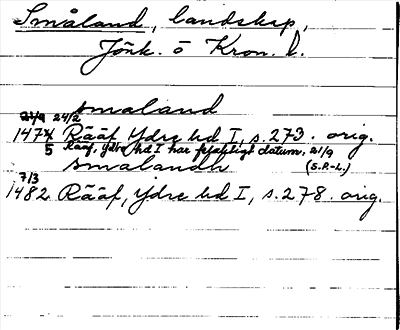 Småland, landskap,
Jönk. o Kron. l.
smaland
21/9 24/2
1474 Rääf, Ydre hd I, s. 273. orig.
5 Rääf, Ydre hd I har felaktigt datum, 21/9
smalandh (S.P.-L.)
7/3
1482 Rääf, Ydre hd I, s. 278. orig.